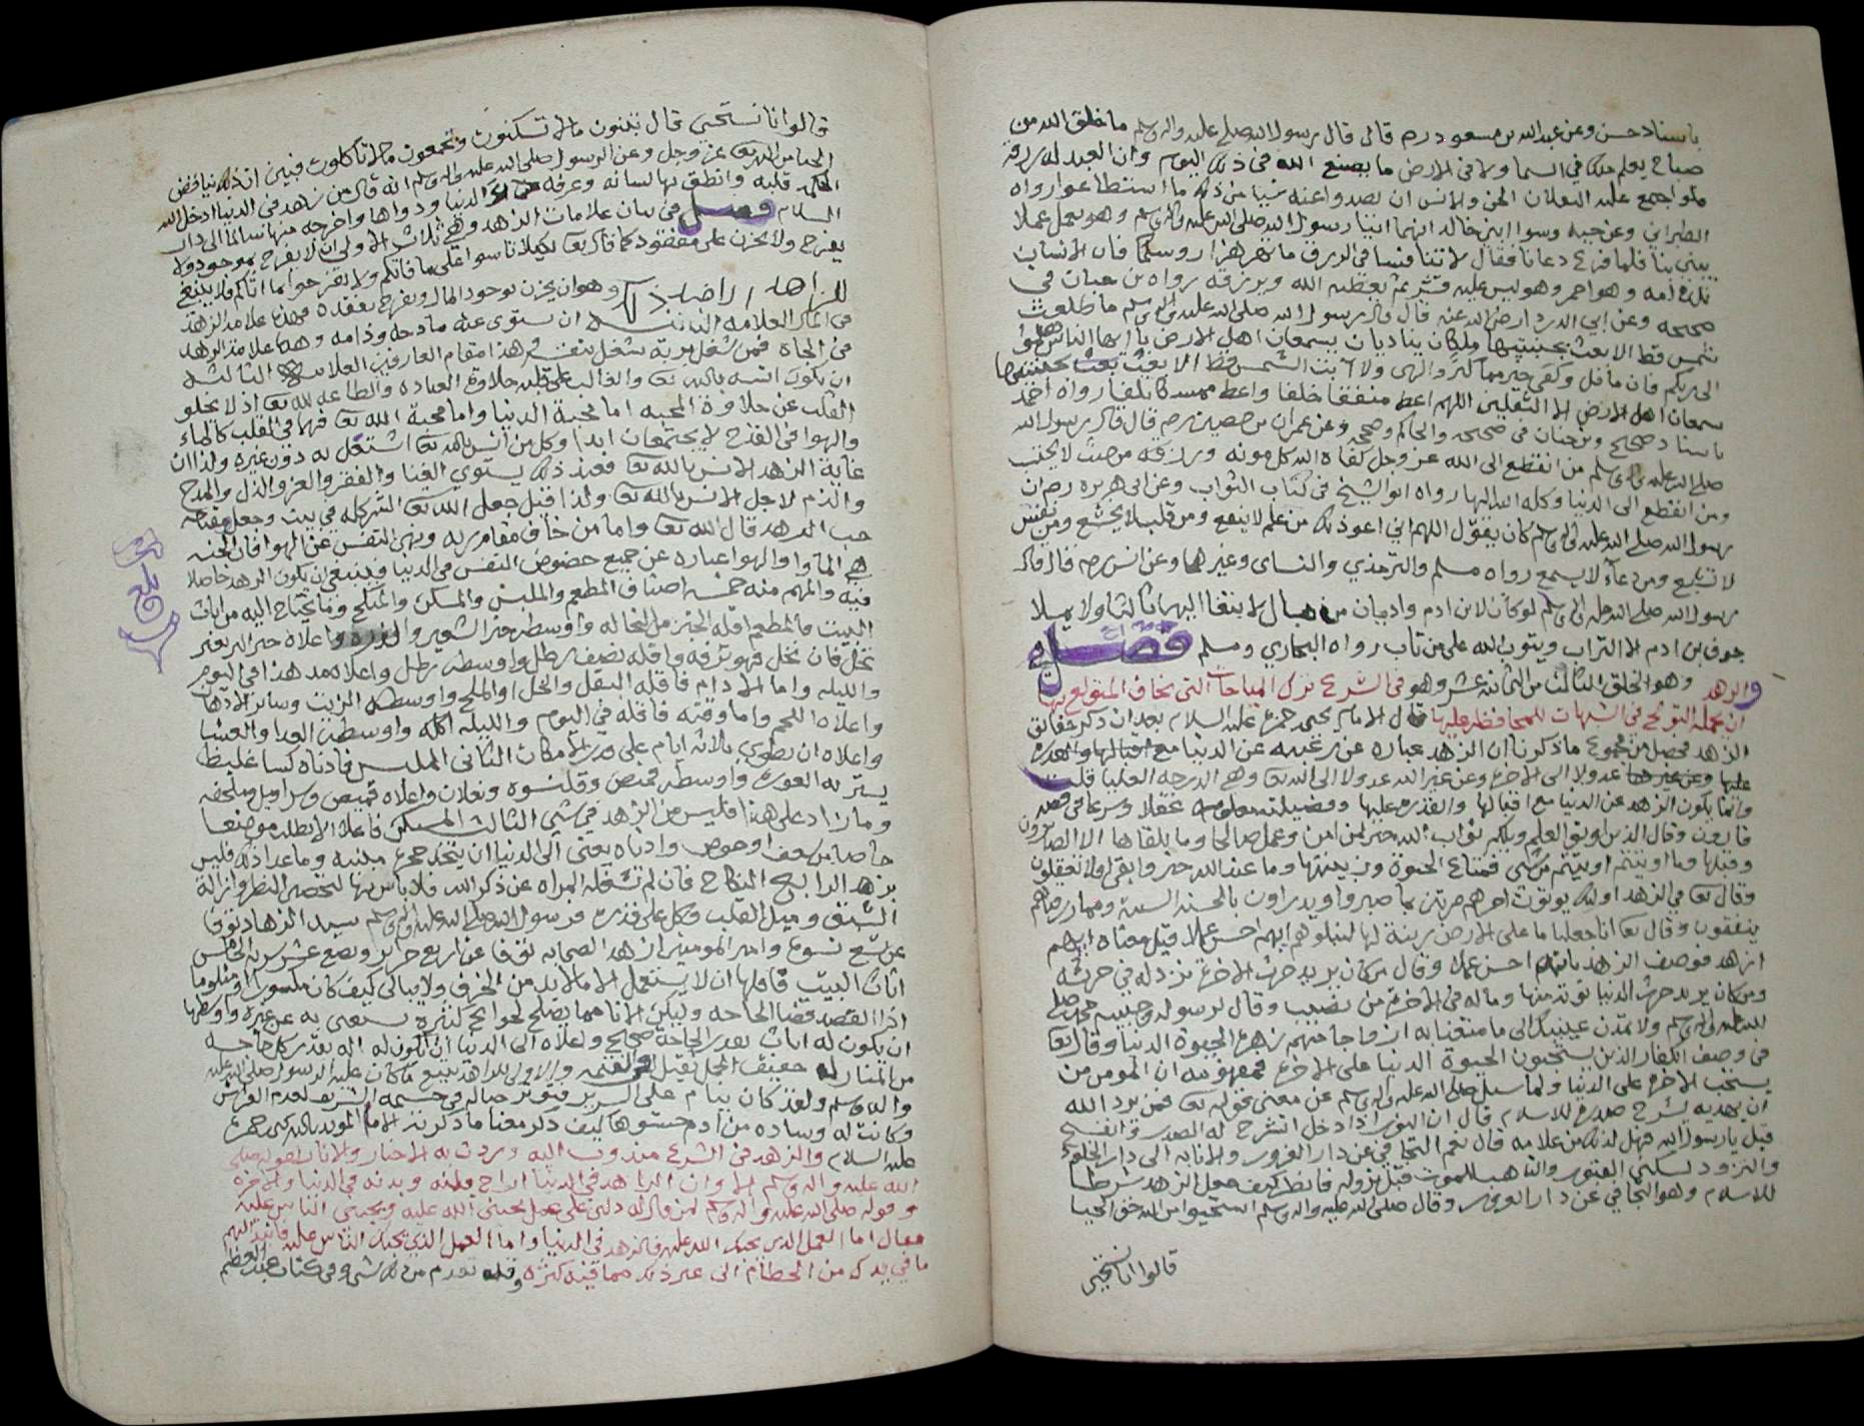 باسناد حسن وعن عبد الله بن مسعود رم قال قال رسول الله صلى عليه واله وسلم ما خلق الله من
صباح يعلم ملك في السما ولا في الارض ما يصنع الله في ذلك اليوم وان العبد له رزقه
فلو اجتمع عليه الثقلان الجن والانس ان يصدوا عنه شيا من ذلك ما استطاعوا رواه
الطبراني وعن حبه وسوا ابني خالد انهما اتيا رسول الله صلى الله عليه واله وسلم وهو يعمل عملا
يبني بنا فلما فرغ دعانا فقال لا تنافسا في الرزق ما تهزهزت روسكما فان الانسان
تلده امه وهو احمر وهو ليس عليه قشر ثم يعطيه الله ويرزقه رواه بن حبان في
صحيحه وعن ابي الدردا رضي الله عنه قال قال رسول الله صلى الله عليه واله وسلم ما طلعت
شمس قط الا بعث بجنبتيها ملكان يناديان يسمعان اهل الارض يا ايها الناس هلموا
الى ربكم فان ما قل وكفى خير مما كثر والهى ولا آبت الشمس قط الا بعث بجنبتيها
يسمعان اهل الارض الا الثقلين اللهم اعط منفقا خلفا واعط ممسكا تلفا رواه احمد
باسناد صحيح وبن حبان في صحيحه والحاكم وصححه وعن عمران بن حصين رم قال قال رسول الله
صلى الله عليه واله وسلم من انقطع الى الله عز وجل كفاه الله كل مونه ورزقه من حيث لا يحتسب
ومن انقطع الى الدنيا وكله الله اليها رواه ابو الشيخ في كتاب الثواب وعن ابي هريره رم ان
رسول الله صلى الله عليه واله وسلم كان يقول اللهم اني اعوذ بك من علم لا ينفع ومن قلب لا يخشع ومن نفس
لا تشبع ومن دعآء لا يسمع رواه مسلم والترمذي والنساى وغيرهما وعن انس رم قال قال
رسول الله صلى الله عليه واله وسلم لو كان لابن ادم واديان من مال لابتغا اليهما ثالثا ولا يملا
جوف بن ادم الا التراب ويتوب الله على من تاب رواه البخاري ومسلم فصل في
والزهد وهو الخلق الثالث من الثمانيه عشر وهو في الشرع ترك المباحات التي يخاف المتولع بها
قال الامام يحيى حمزه عليه السلام بعد ان ذكر حقايق
الزهد فحصل من مجموع ما ذكرنا ان الزهد عباره عن رغبه عن الدنيا مع
عدولا الى الاخرة وعن غير الله عدولا الى الله تعا وهي الدرجه العليا قلت
وانما يكون الزهد عن الدنيا مع اقبالها والقدره عليها وفضيلته معلومه عقلا وشرعا في قصه
قارون وقال الذين اوتوا العلم ويلكم ثواب الله خير لمن امن وعمل صالحا وما يلقاها الا الصابرون
وقبلها وما اوتيتم من شي فمتاع الحيوة الدنيا وزينتها وما عند الله خير وابقى افلا تعقلون
وقال تعا في الزهد اوليك يوتون اجرهم مرتين بما صبروا ويدراون بالحسنه السيه ومما رزقناهم
ينفقون وقال تعا انا جعلنا ما على الارض زينة لها لنبلوهم ايهم احسن عملا قيل معناه ايهم
ازهد فوصف الزهد بانه احسن عملا وقال من كان يريد حرث الاخرة نزد له في حرثه
ومن كان يريد حرث الدنيا نوته منها وما له في الاخرة من نصيب وقال لرسوله وحبيبه محمد صلى
الله عليه واله وسلم ولا تمدن عينيك الى ما متعنا به ازواجا منهم زهرة الحيوة الدنيا وقال تعا
في وصف الكفار الذين يستحبون الحيوة الدنيا على الاخرة فمفهومه ان المومن من
يستحب الاخرة على الدنيا ولما سيل صلى الله عليه واله وسلم عن معنى قوله تعا فمن يرد الله
ان يهديه يشرح صدره للاسلام قال ان النور اذا دخل انشرح له الصدر وانفسح
قيل يا رسول الله فهل لذلك من علامه قال نعم التجافي عن دار الغرور والانابه الى دار الخلود
والتزود لسكنى القبور والتاهب للموت قبل نزوله فانظر كيف جعل الزهد شرطا
للاسلام وهو التجافي عن دار الغرور وقال صلى الله عليه واله وسلم استحيوا من الله حق الحيا
قالوا انا نستحيي
قالوا انا نستحيى قال تبنون ما لا تسكنون وتجمعون ما لا تاكلون فبين ان ذلك ينافض
الحيا من الله تعا عز وجل وعن الرسول صلى الله عليه واله وسلم انه قال من زهد في الدنيا ادخل الله
الحكمه قلبه وانطق بها لسانه وعرفه داء الدنيا ودواها واخرجه منها سالما الى دار
السلام فصل في بيان علامات الزهد وهي ثلاث الاولى ان لا يفرح بموجود ولا
يفرح ولا يحزن على مفقود كما قال تعا لكيلا تاسوا على ما فاتكم ولا تفرحوا بما اتاكم فلا ينبغي
للزاهد الا ضد ذلك وهو ان يحزن بوجود المال ويفرح بفقده فهذه علامة الزهد
في المال العلامه الثانيه ان يستوى عنده مادحه وذامه وهذه علامة الزهد
في الجاه العلامه الثالثه
ان يكون انسه بالله تعا والغالب على قلبه حلاوة العباده والطاعه لله تعا اذ لا يخلو
القلب عن حلاوة المحبه اما محبة الدنيا واما محبة الله تعا فهما في القلب كالماء
والهوا في القدح لا يجتمعان ابدا وكل من انس بالله تعا اشتغل به دون غيره ولذا ان
غاية الزهد الانس بالله تعا فعند ذلك يستوي الغنا والفقر والعز والذل والمدح
والذم لاجل الانس بالله تعا ولذا قيل جعل الله تعا الشر كله في بيت وجعل مفتاحه
حب الدنيا قال الله تعا واما من خاف مقام ربه ونهى النفس عن الهوا فان الجنه
هي الماوا والهوا عباره عن جميع حضوض النفس في الدنيا فينبغي ان يكون الزهد حاصلا
فيه والمهم منه خمسه اصناف المطعم والملبس والمسكن والمنكح وما يحتاج اليه من اثاث
البيت فالمطعم اقله الخبز من النخاله واوسطه خبز الشعير والذره واعلاه خبز البر بغير
نخل فان نخل فهو ترفه واقله نصف رطل واوسطه رطل واعلاه مد هذا في اليوم
والليله واما الادام فاقله البقل والخل او الملح واوسطه الزيت وسائر الادهان
واعلاه اللحم واما وقته فاقله في اليوم والليله اكله واوسطه الغدا والعشا
واعلاه ان يطوي ثلاثه ايام على قدر الامكان الثاني الملبس فادناه كسا غليظ
يستر به العوره واوسطه قميص وقلنسوه ونعلان واعلاه قميص وسراويل وملحفه
وما زاد على هذا فليس من الزهد في شي الثالث المسكن فاعلاه ان لا يطلب موضعا
خاصا من سعف او خوص وادناه يعني الى الدنيا ان يتخذ حجرة مبنيه وما عدا ذلك فليس
بزهد الرابع النكاح فان لم تشغله المراه عن ذكر الله فلا باس بها لتحصين النظر وازالة
الشبق وميل القلب وكل على قدره فرسول الله صلى الله عليه واله وسلم سيد الزهاد توفا
عن تسع نسوة وامير المومنين ازهد الصحابه توفا عن اربع حراير وبضع عشر سريه الخامس
اثاث البيت فاقلها ان لا يستعمل الا ما لا بد من الخزف ولا يبالى كيف كان مكسورا او مثلوما
اذ القصد قضا الحاجه وليكن الانا مما يصلح لحوايج كثيرة يستغنى به عن غيره واوسطها
ان يكون له اثاث بقدر الحاجة صحايح واعلاه الى الدنيا ان يكون له اله بقدر كل حاجه
واله وسلم ولقد كان ينام على السرير فتوثر حباله في جسمه الشريف لعدم الفراش
وكانت له وساده من ادم حشوها ليف ذكر معنا ما ذكرته الامام المويد بالله يحيى حمزه
عليه السلام والزهد في الشرع مندوب اليه وردت به الاخبار والاثار لقوله صلى
الله عليه واله وسلم الا وان الزاهد في الدنيا اراح قلبه وبدنه في الدنيا والاخره
وقوله صلى الله عليه واله وسلم لمن قال له دلني على عمل يحبني الله عليه ويحبني الناس عليه
فقال اما العمل الذي يحبك الله عليه فالزهد في الدنيا واما العمل الذي يحبك الناس عليه فانبذ اليهم
ما في يدك من الحطام الى غير ذلك مما فيه كثره وقد تقدم من ذلك شي وفي كتاب